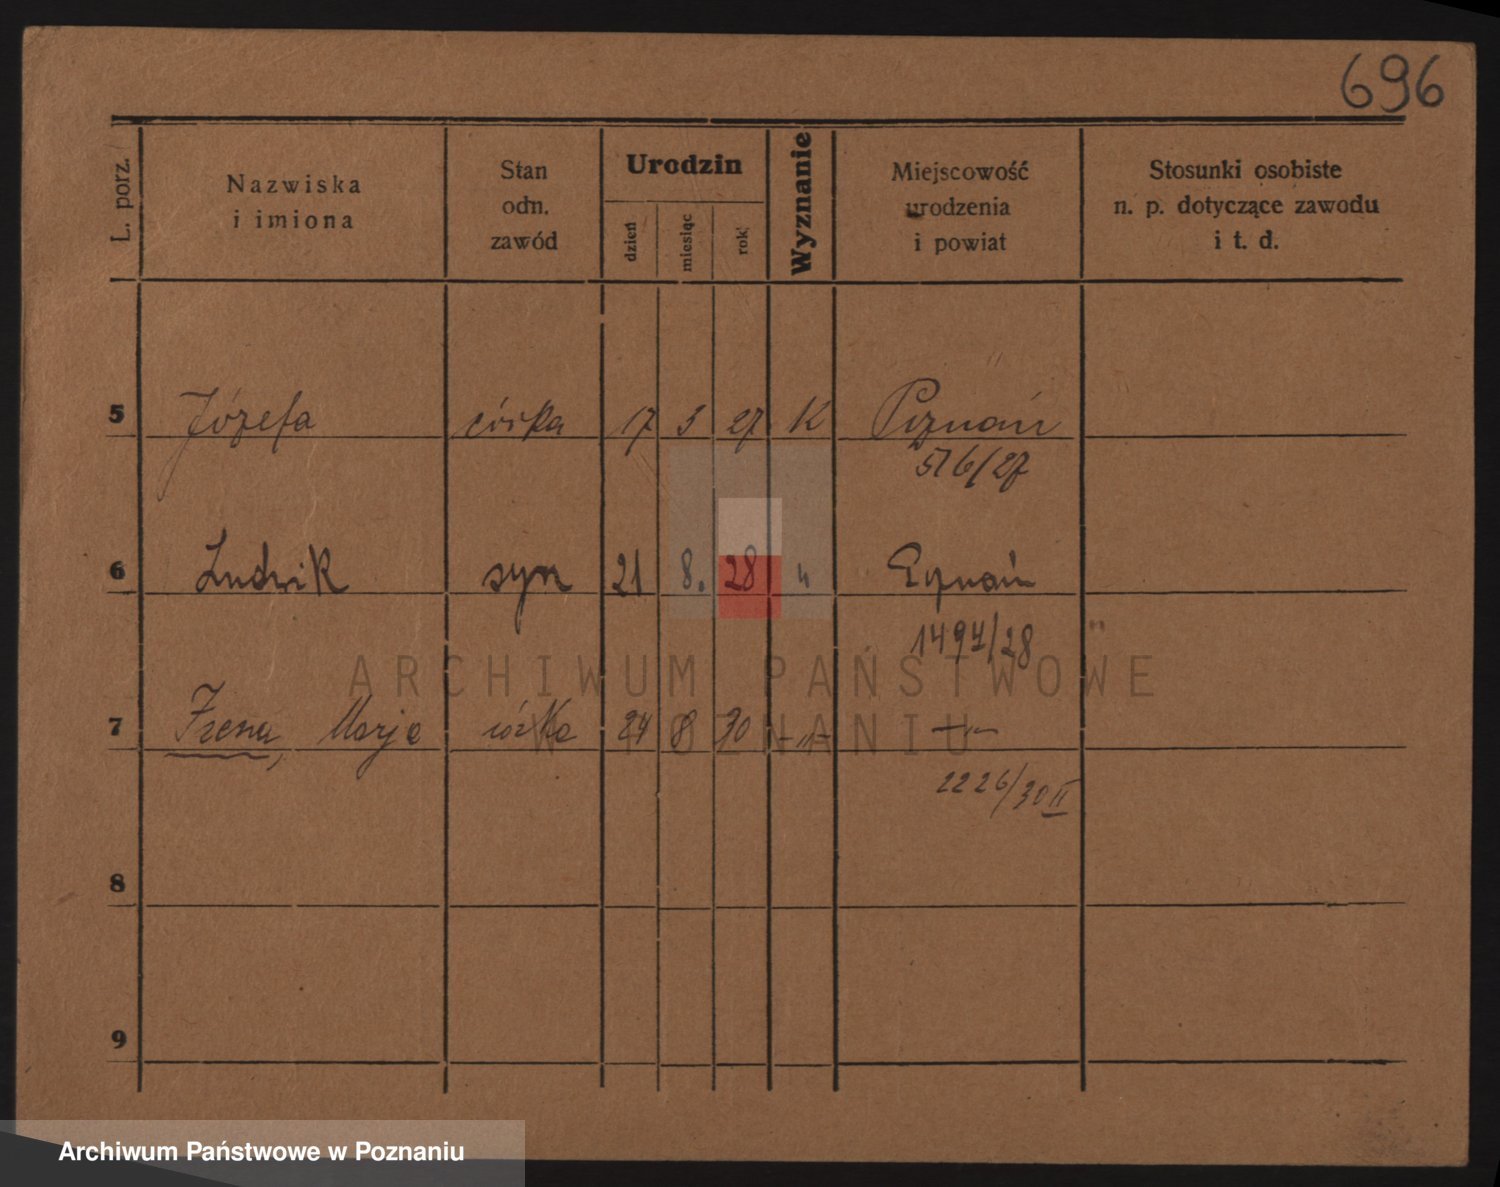 696
L. porz.
Nazwiska
i imiona
Stan
odn.
zawód
Urodzin
dzień
miesiąc
rok
Wyznanie
Miejscowość
urodzenia
i powiat
Stosunki osobiste
n. p. dotyczące zawodu
i t. d.
5 Józefa córka 17 3 27 K Poznań
516/27
6 Ludwik syn 21 8. 28 " Poznań
1497/28
ARCHIWUM PAŃSTWOWE
W POZNANIU
7 Irena, Marja córka 24 8 30 -"- -"-
2226/30 II
8
9
Archiwum Państwowe w Poznaniu